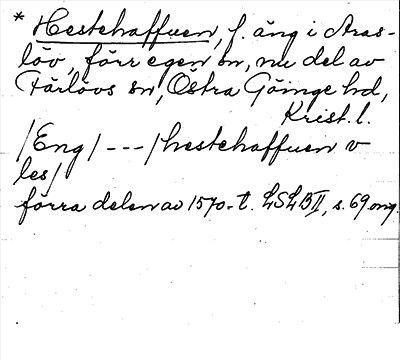 * Hestehaffuen, f. äng i Aras-
löv, förr egen sn, nu del av
Färlövs sn, Östra Göinge hd,
Krist. l.
/Eng/ --- / hestehaffuen v
les/
förra delen av 1570-t. LSLB II, s. 69 omg.